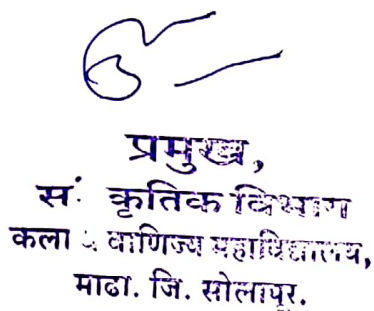 प्रमुख,
सं कृतिक विभाग
कला व वाणिज्य महाविद्यालय,
माढा. जि. सोलापूर.